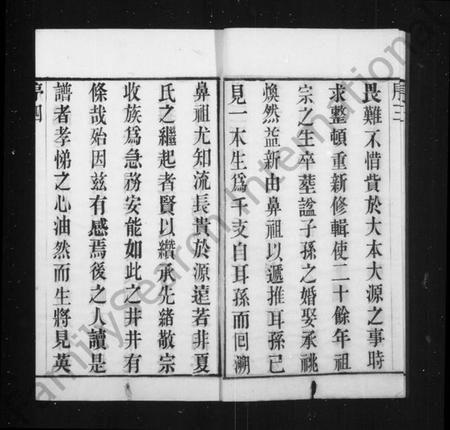 序三
畏難不惜貲於大本大源之事時
求整頓重新修輯使二十餘年祖
宗之生卒塟諡子孫之婚娶承祧
煥然益新由鼻祖以遞推耳孫已
見一本生爲千支自耳孫而囘溯
鼻祖尤知流長貴於源遠若非夏
氏之繼起者賢以纘承先緒敬宗
收族爲急務安能如此之井井有
條哉殆因兹有感焉後之人讀是
譜者孝悌之心油然而生將見英
序四
FamilySearch International